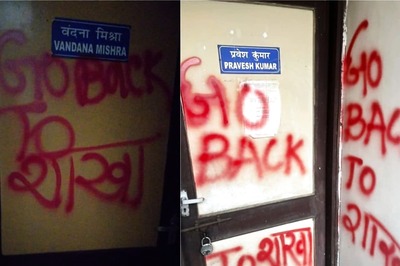 वंदना मिश्रा
VANDANA MISHRA
GO BACK
TO
शाखा
प्रवेश कुमार
PRAVESH KUMAR
GO
BACK
TO शाखा
GO
BAC
TO
शाखा